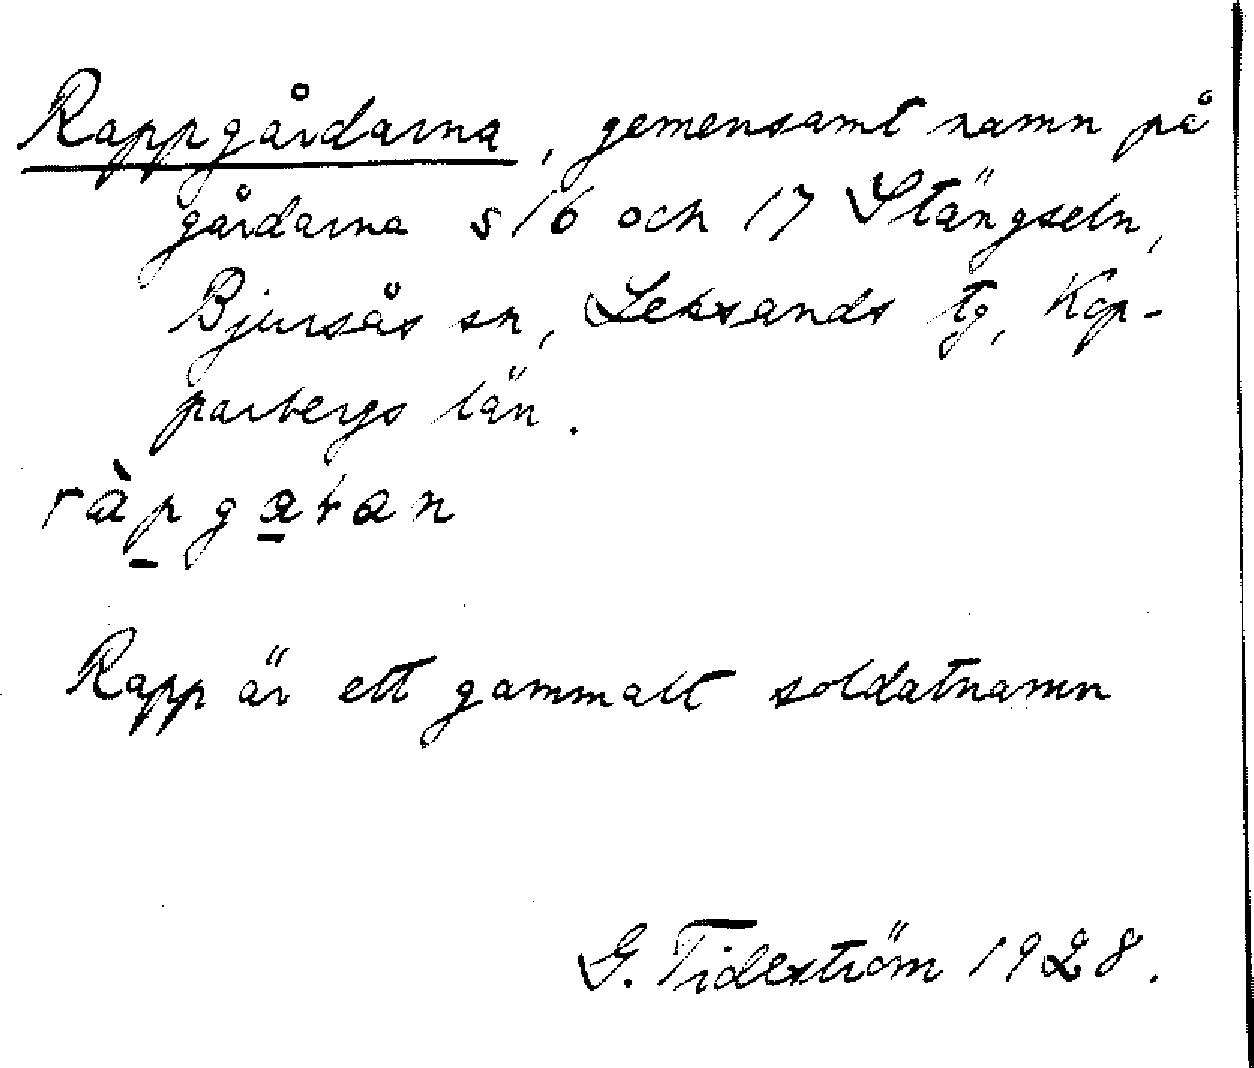 Rappgårdarna, gemensamt namn på
gårdarna s 16 och 17 Stängseln,
Bjursås sn, Leksands tg, Kop-
parbergs län.
ràp̲ga̲ran
Rapp är ett gammalt soldatnamn
G. Tideström 1928.